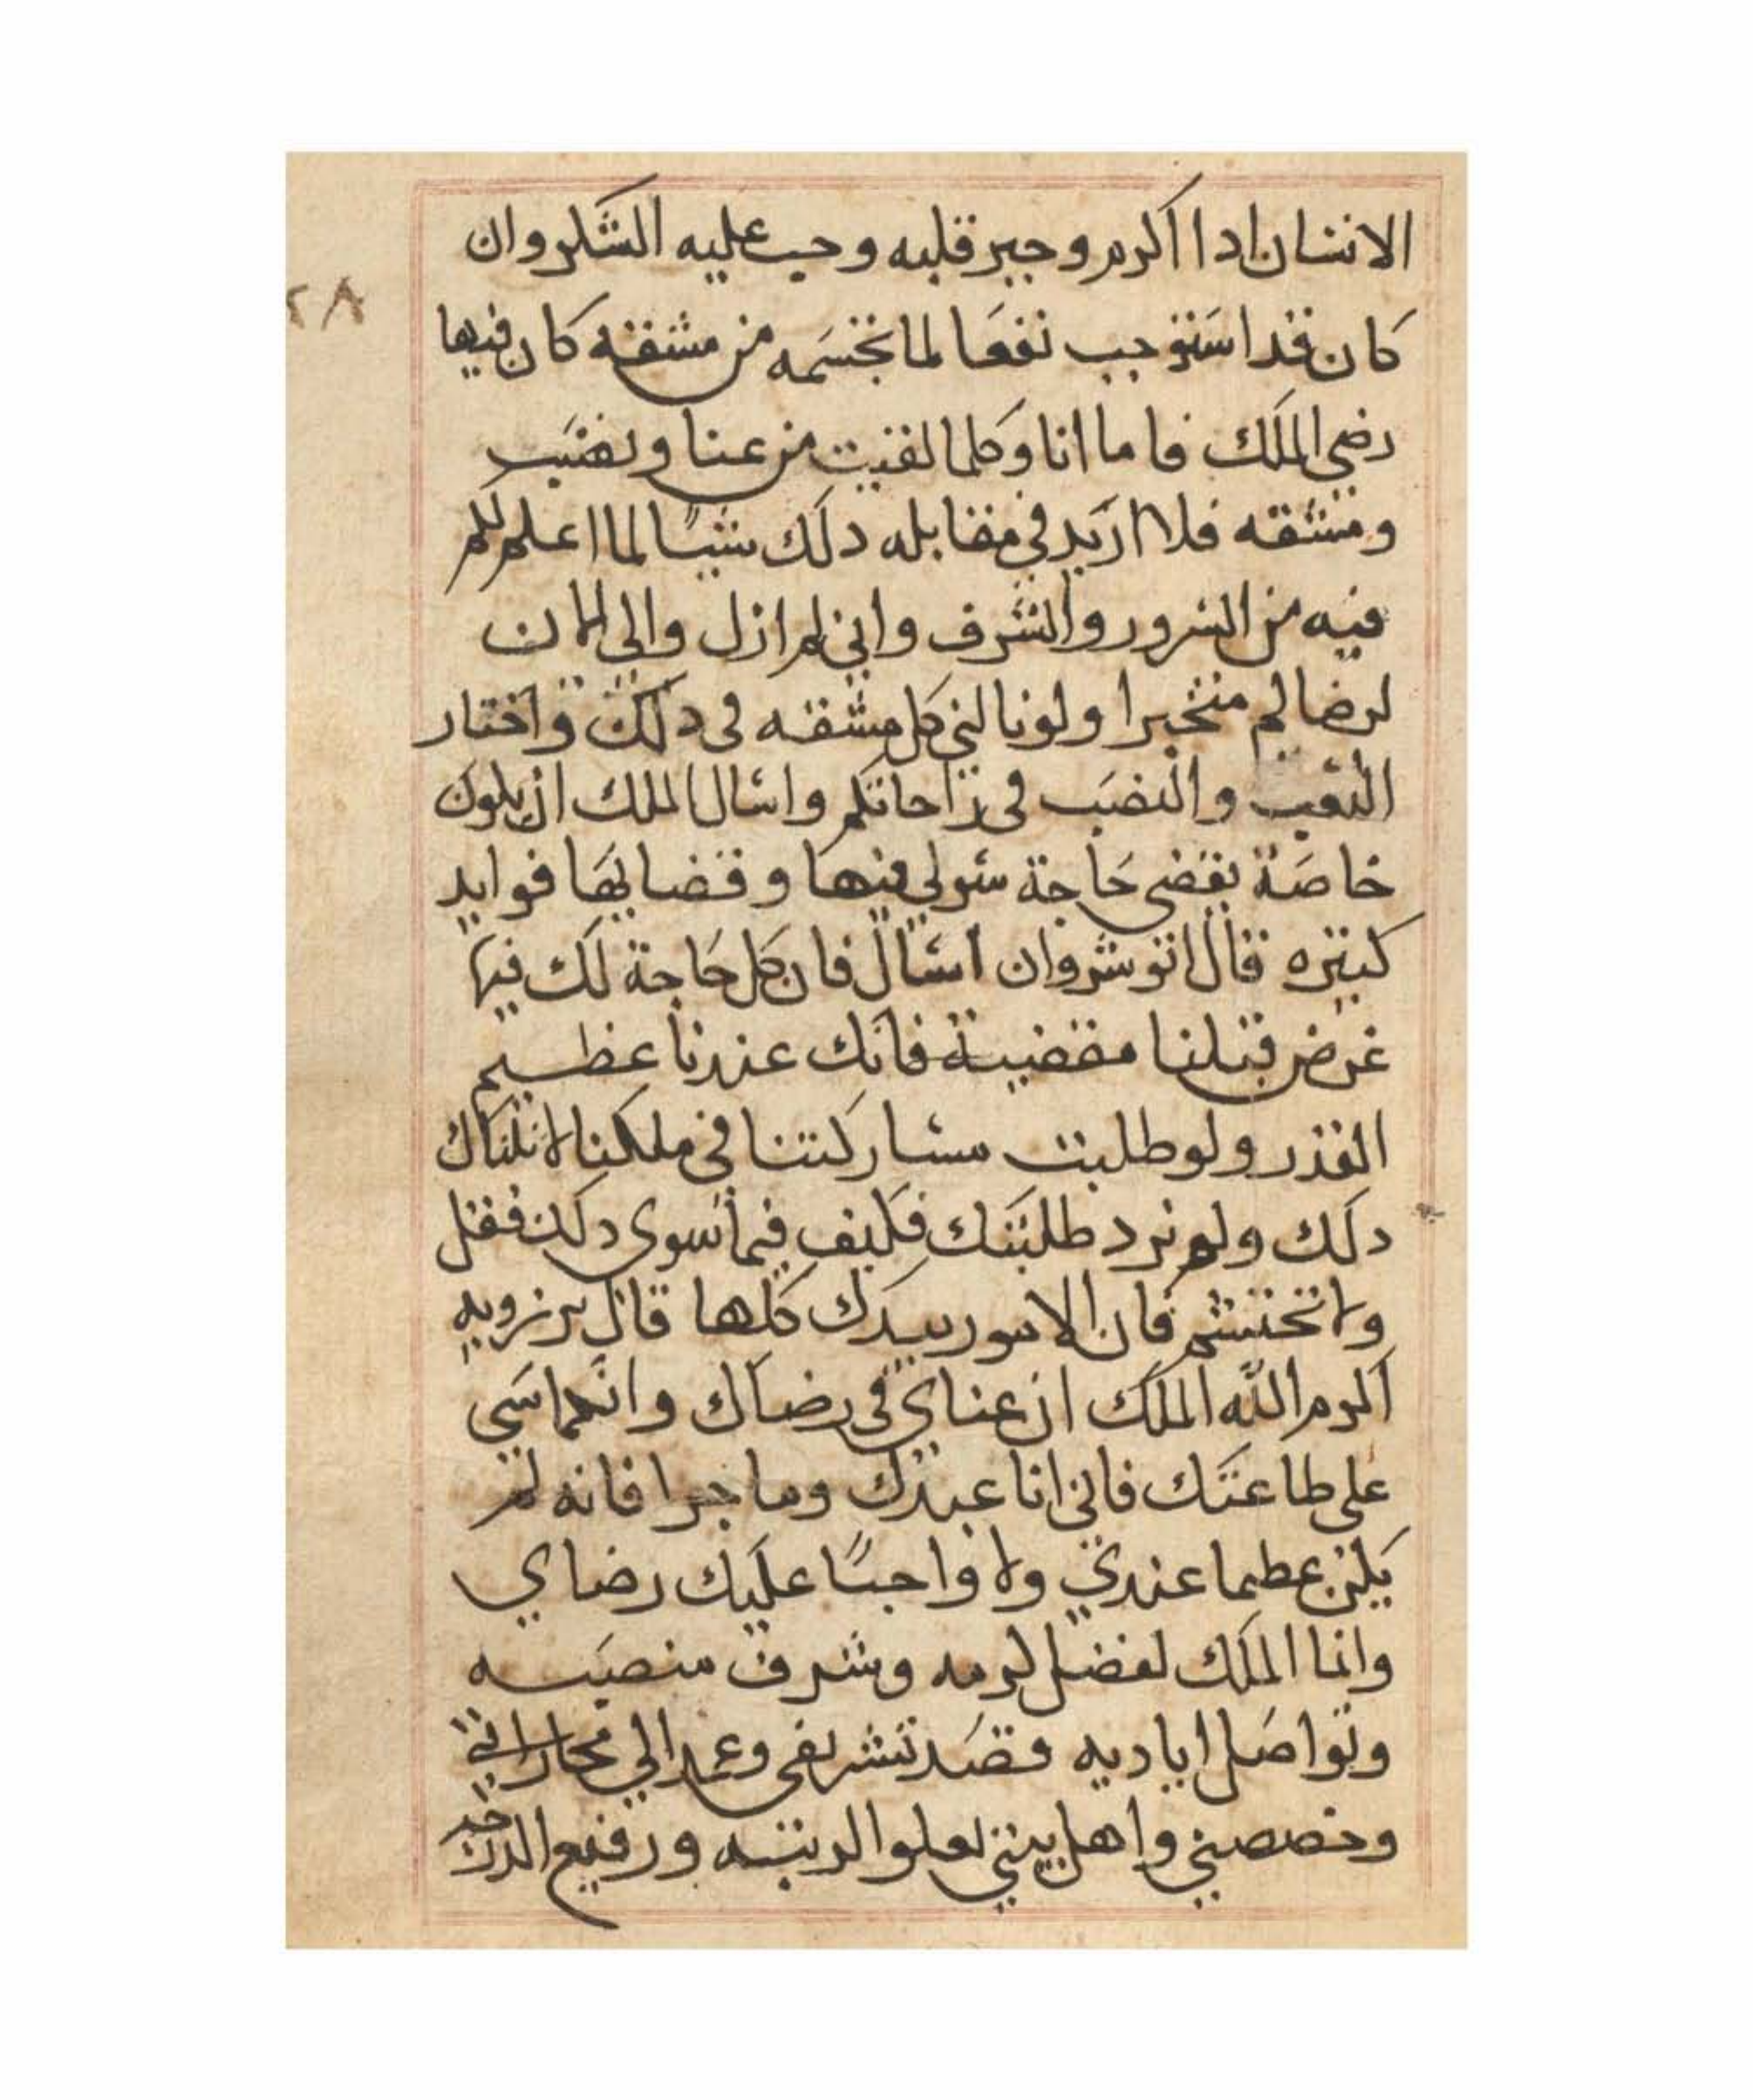 الانسان ادا اكرم وجبر قلبه وجب عليه الشكر وان
٢٨
كان قد استوجب نفعا لما تجشمه من مشقه كان فيها
رضي الملك فاما انا وكلما لقيت من عنا وتعتيب
ومشقه فلا اريد في مقابله دلك شيا لما اعلم لكم
فيه من السرور والشرف واني لم ازل والى الان
لرضاكم متخيرا ولو نالني كل مشقه فى دلك واختار
التعب والنصب فى راحاتكم واسال الملك ان يكون
خاصة بقضى حاجة سولي فيها وقضايها فوايد
كبيره قال انوشروان اسال فان كل حاجة لك فيها
غرض قبلنا مقضية فانك عندنا عظيم
القدر ولو طلبت مشاركتنا في ملكنا لانلناك
دلك ولم نرد طلبتك فكيف فيما سوى دلك فقل
ولا تحتشم فان الامور بيدك كلها قال برزويه
اكرم الله الملك ان عناي فى رضاك وانكماشي
على طاعتك فاني انا عبدك وما جرا فانه لم
يكن عظيما عندي ولا واجبًا عليك رضاي
وانما الملك لفضل كرمه وشرف منصبه
وتواصل اياديه قصد تشريفى وعمد الي مجازاتي
وخصصني واهل بيتي لعلو الرتبه ورفيع الدرجه